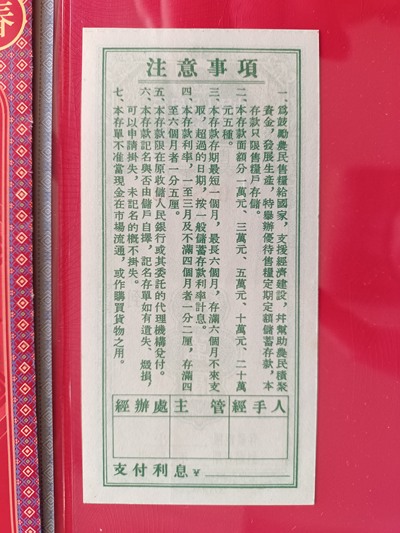 注意事項
一、爲鼓勵農民售糧給國家，支援經濟建設，幷幫助農民積聚
資金，發展生產，特舉辦優待售糧定期定額儲蓄存款，本
存款只限售糧戶存儲。
二、本存款面額分一萬元、三萬元、五萬元、十萬元、二十萬
元五種。
三、本存款存期最短一個月，最長六個月，存滿六個月不來支
取，超過的日期，按一般儲蓄存款利率計息。
四、本存款利率，一至三月及不滿四個月者一分二厘，存滿四
至六個月者一分五厘。
五、本存款限在原收儲人民銀行或其委託的代理機構兌付。
六、本存款記名與否由儲戶自擇，記名存單如有遺失、燬損，
可以申請掛失，未記名的概不掛失。
七、本存單不准當現金在市場流通，或作購買貨物之用。
經辦處 主管 經手人
支付利息¥
春